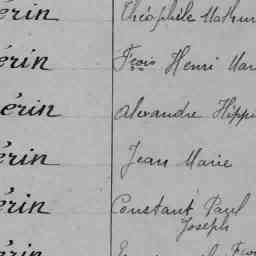 érin Théophile Mathur
érin Frçois Henri Mar
érin Alexandre Hippo
érin Jean Marie
érin Constant Paul
Joseph
érin